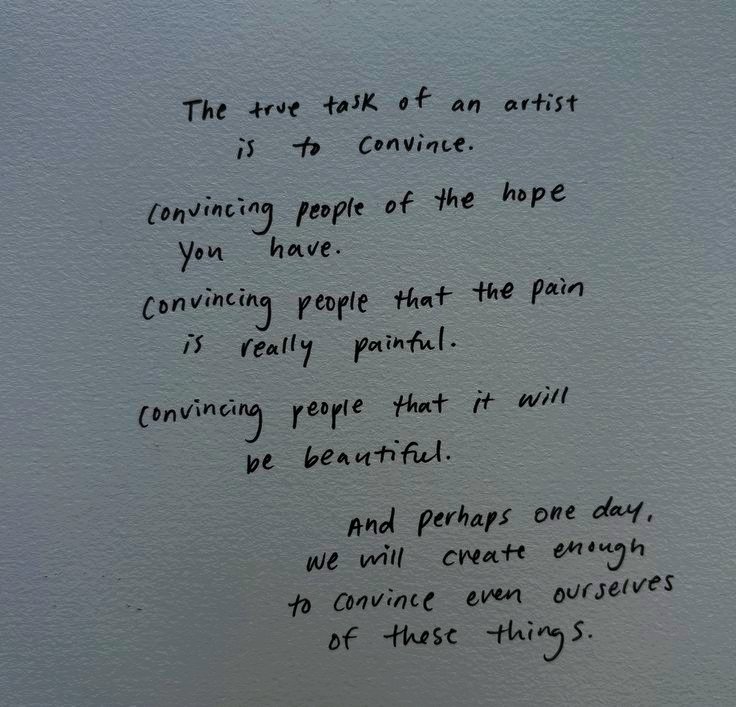 The true task of an artist
is to convince.
convincing people of the hope
you have.
convincing people that the pain
is really painful.
convincing people that it will
be beautiful.
And perhaps one day,
we will create enough
to convince even ourselves
of these things.